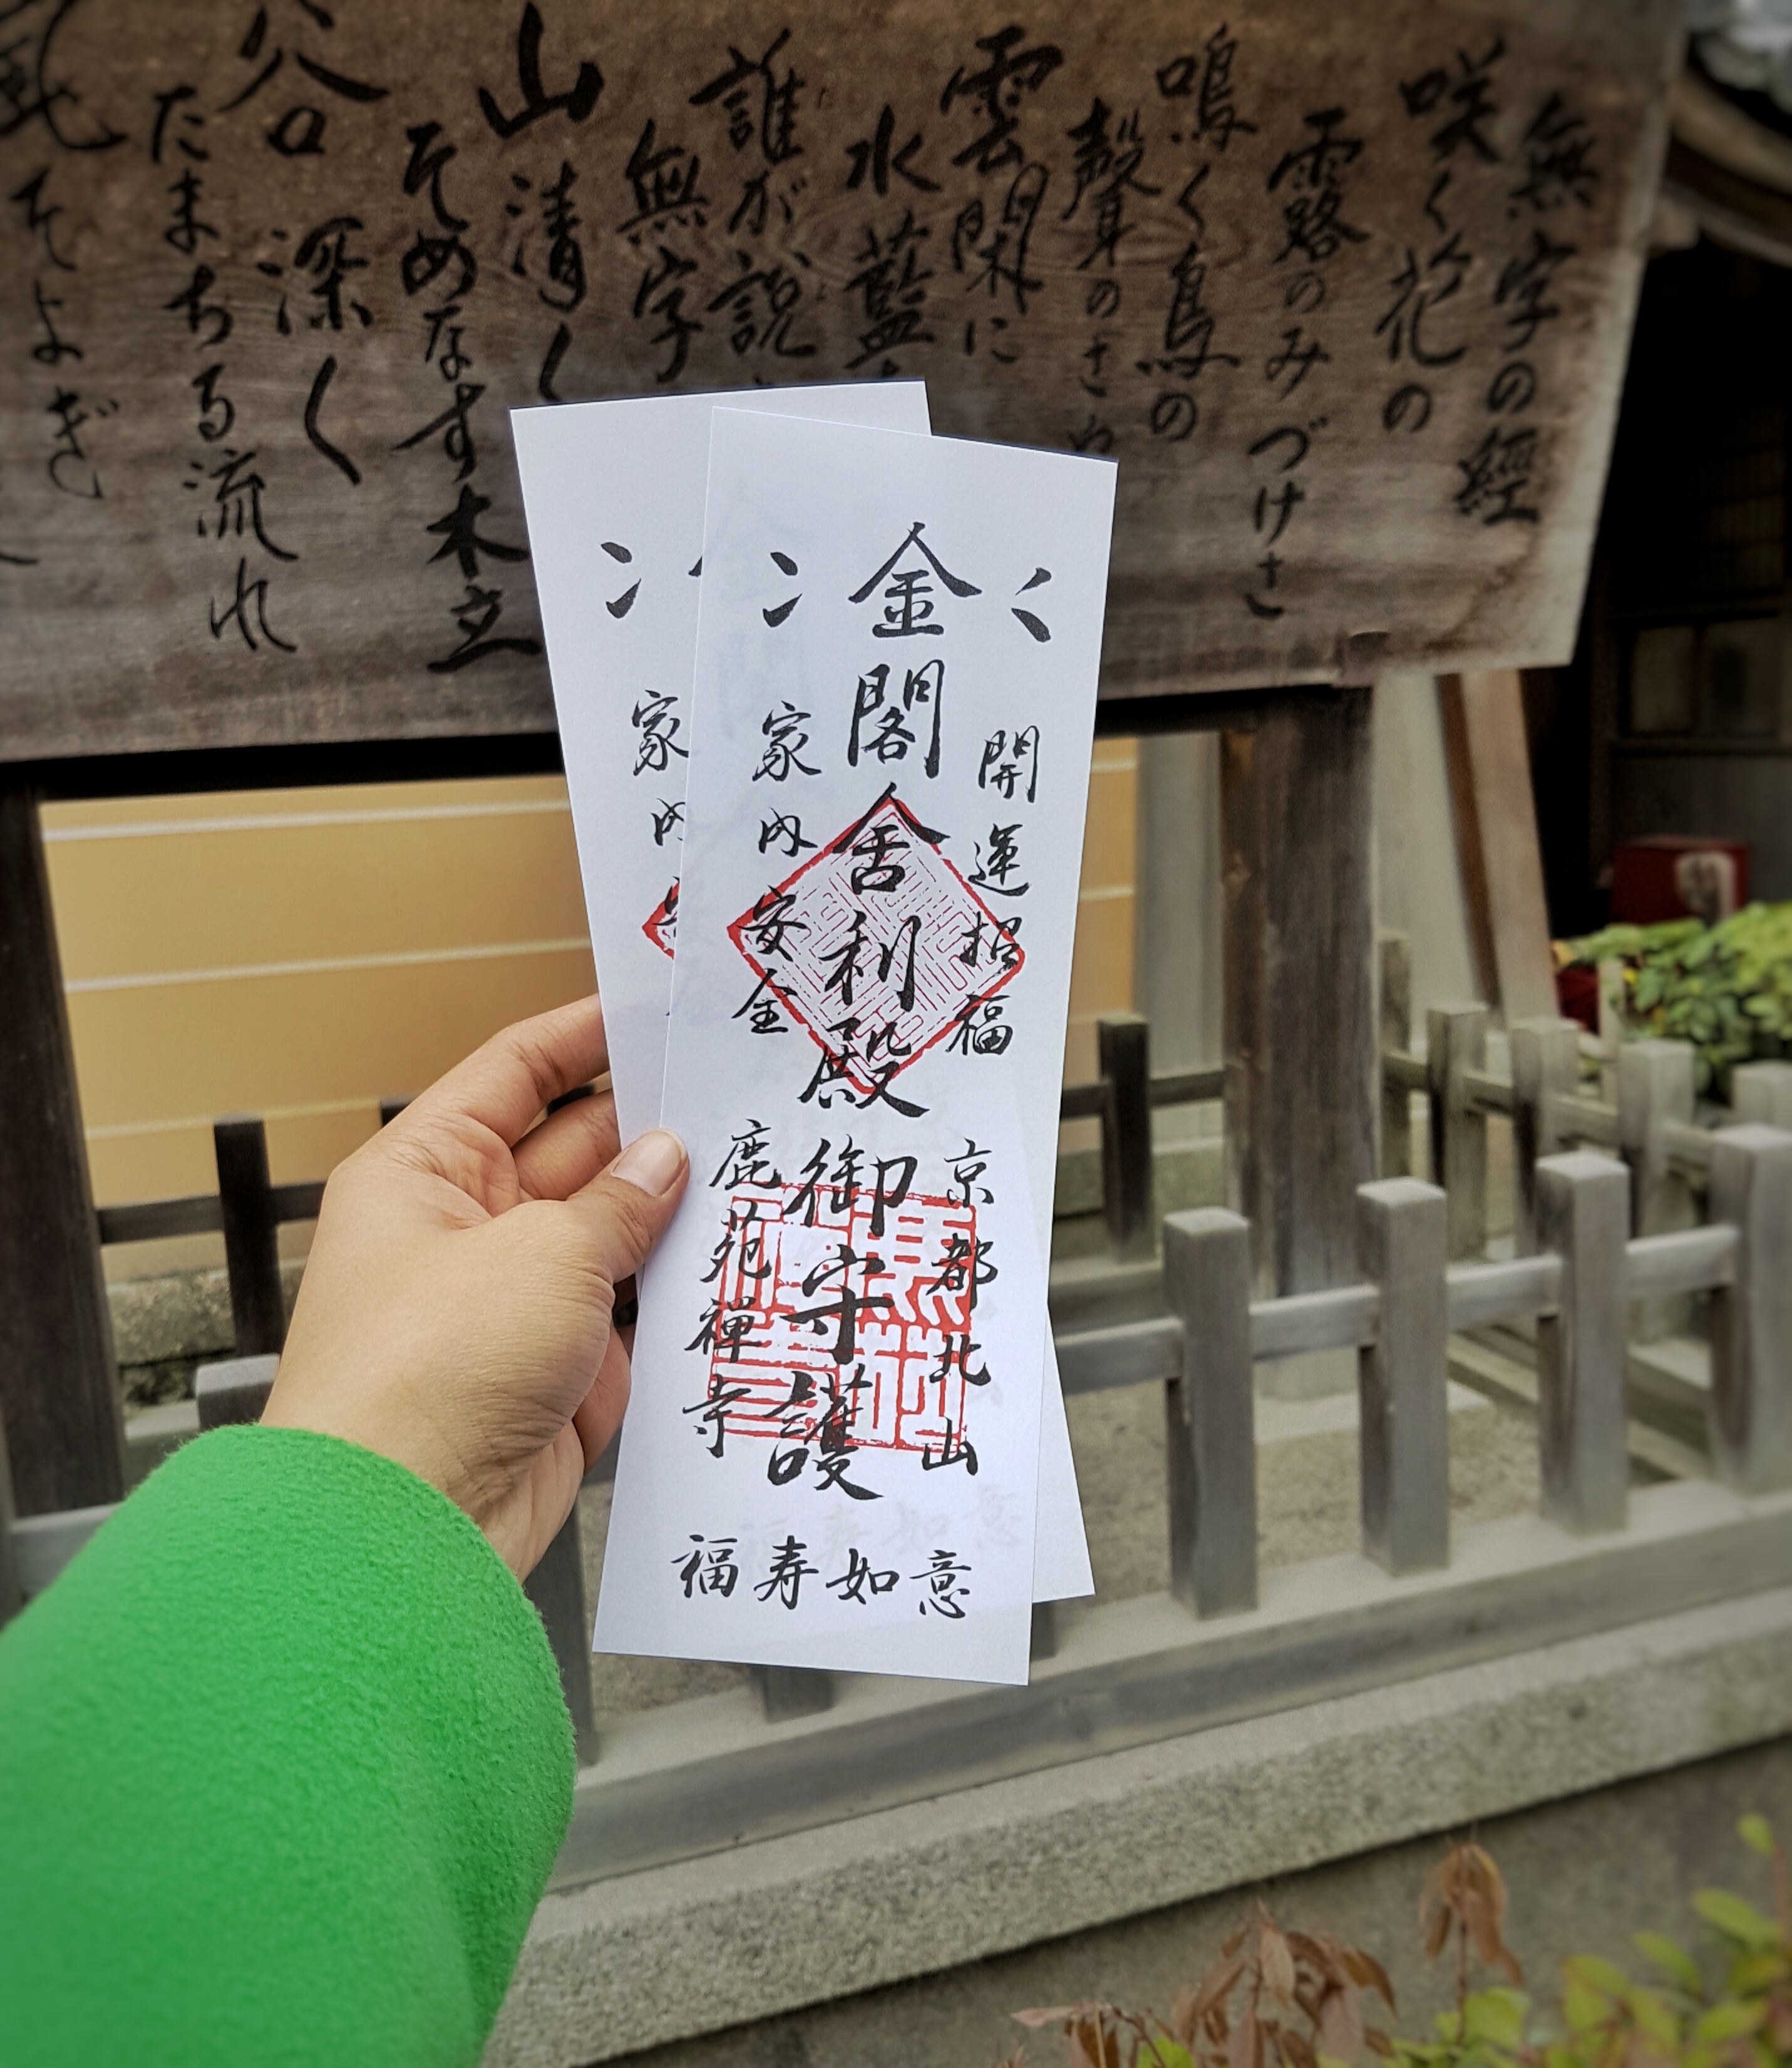 無字の經
咲く花の
露のみづけさ
鳴く鳥の
聲のさや
雲閑に
水藍
誰が説
無字
山清く
そめなす木立
谷深く
たまちる流れ
そよぎ
金閣舎利殿御守護
開運招福
家内安全
京都北山
鹿苑禅寺
福寿如意
家内